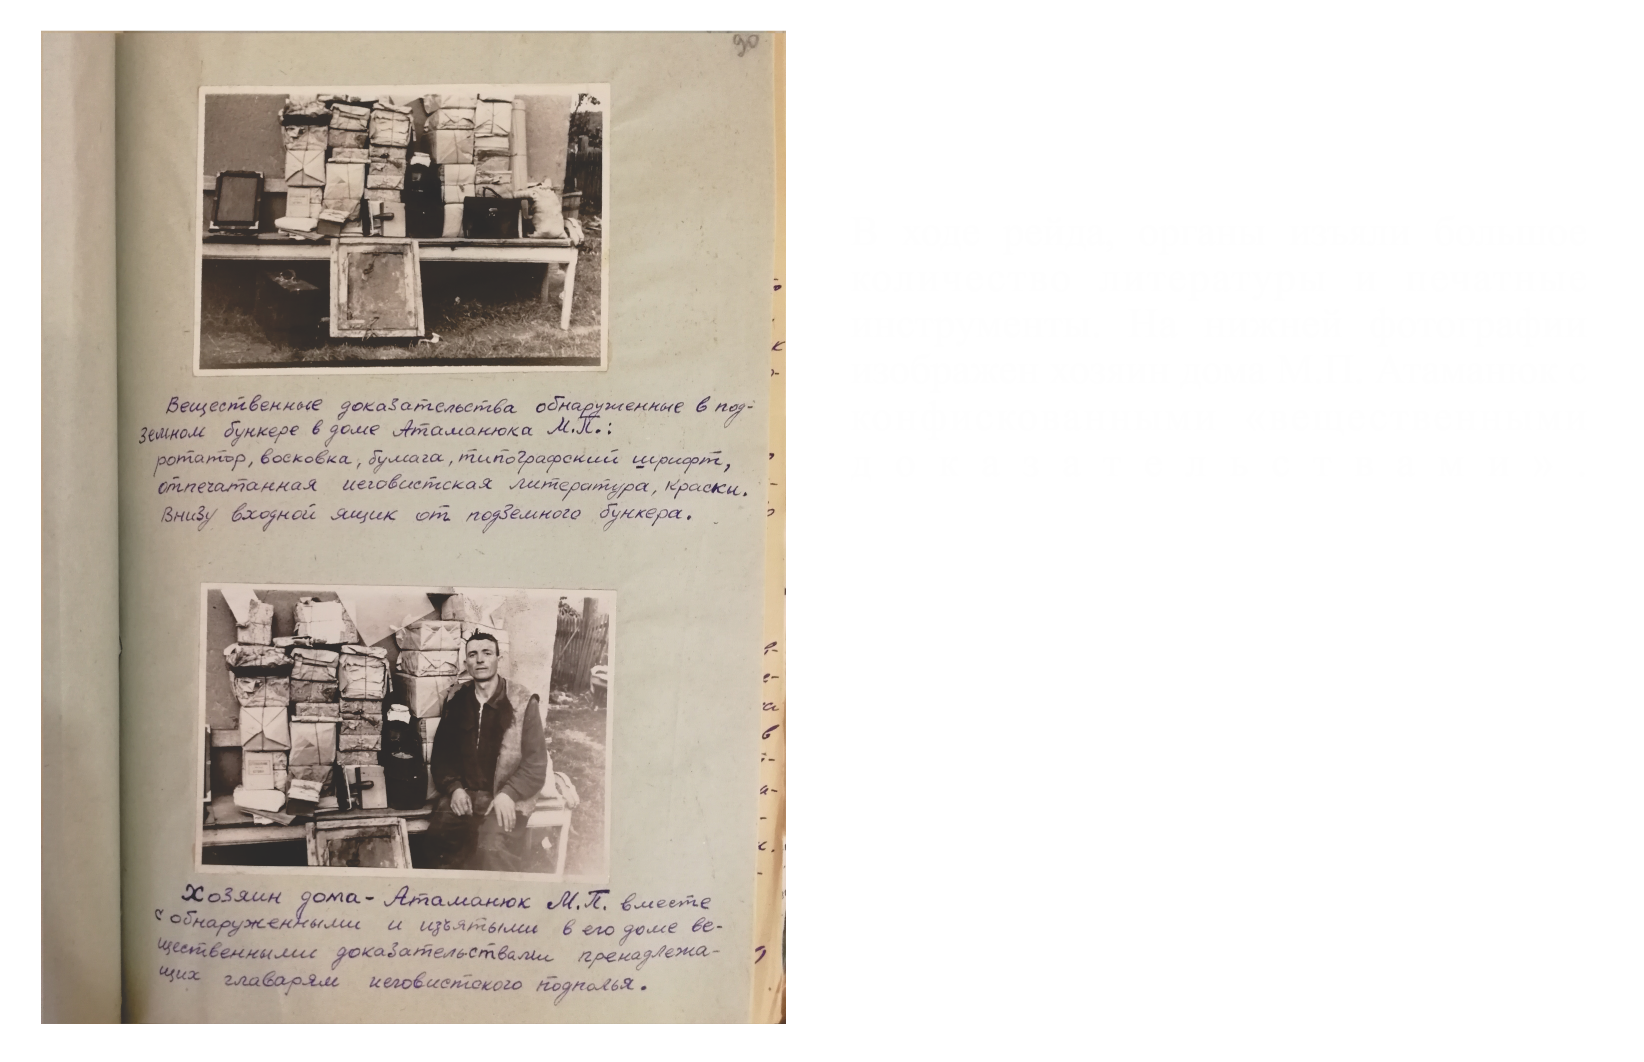 90
Вещественные доказательства обнаруженные в под-
земном бункере в доме Атаманюка М.П.:
ротатор, восковка, бумага, типографский шрифт,
отпечатанная иеговистская литература, краски.
Внизу входной ящик от подземного бункера.
Хозяин дома - Атаманюк М.П. вместе
с обнаруженными и изъятыми в его доме ве-
щественными доказательствами пренадлежа-
щих главарям иеговистского подполья.